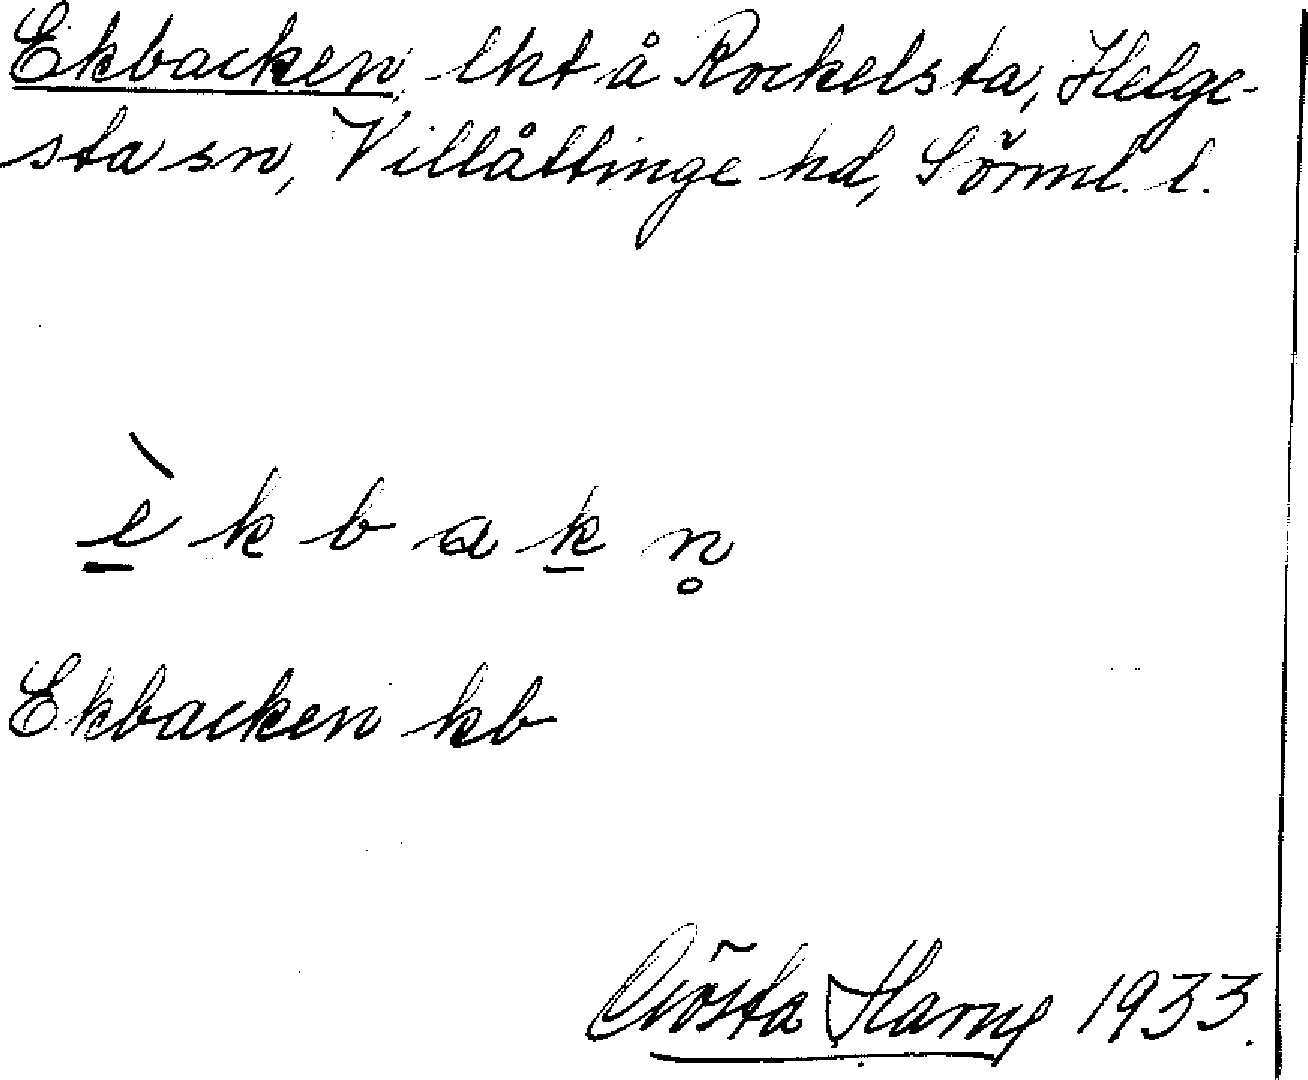 Ekbacken, lht å Rockelsta, Helge-
sta sn, Villåttinge hd, Sörml. l.
è̱ k b a ḵ n̥
Ekbacken kb
Gösta Harny 1933.